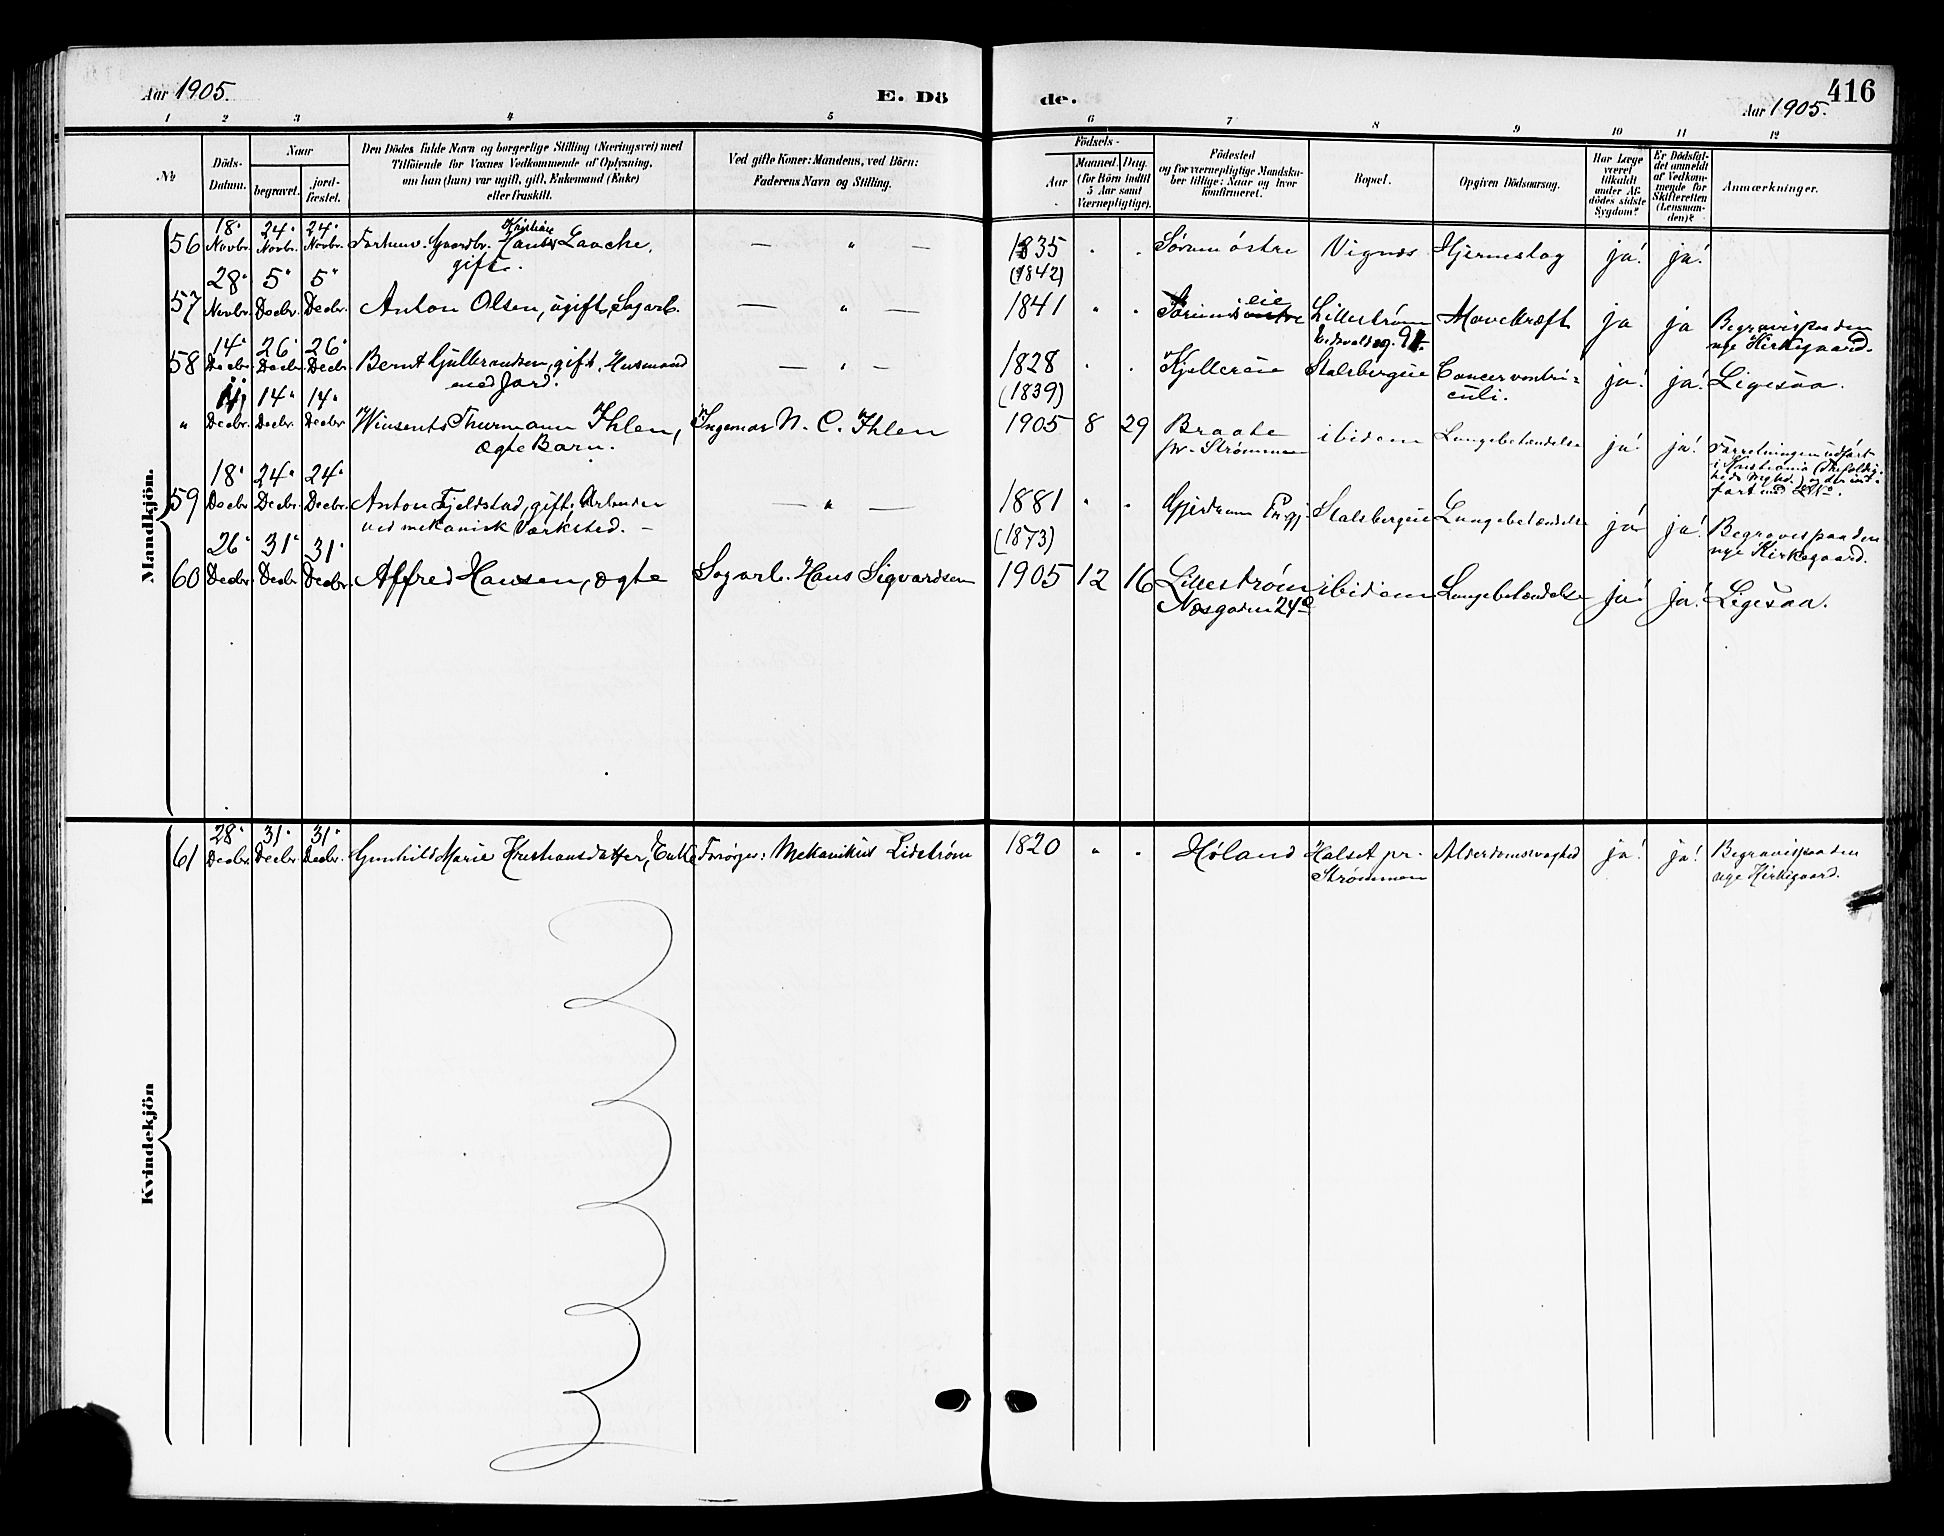 Aar 1905.
E. Dö
de.
416
Aar 1905.
1 2 3 4 5 6 7 8 9 10 11 12
№
Döds-
Datum.
Naar
begravet.
jord-
fæstet.
Den Dödes fulde Navn og borgerlige Stilling (Næringsvei) med
Tilföiende for Voxnes Vedkommende af Oplysning,
om han (hun) var ugift, gift, Enkemand (Enke)
eller fraskilt.
Ved gifte Koner: Mandens, ved Börn:
Faderens Navn og Stilling.
Födsels-
Aar
Maaned. Dag.
(for Börn indtil
5 Aar samt
Værnepligtige).
Födested
og for værnepligtige Mandska-
ber tillige: Naar og hvor
konfirmeret.
Bopæl.
Opgiven Dödsaarsag.
Har Læge
været
tilkaldt
under Af-
dödes sidste
Sygdom?
Er Dödsfal-
det anmeldt
af Vedkom-
mende for
Skifteretten
(Lensman-
den)?
Anmærkninger.
Mandkjön.
56 18. Novbr. 24. Novbr. 24. Novbr. Forhenv. Gaardbr. Kristian Laache, gift. — „ — 1835 (1842) „ „ Sørum østre Vignæs Hjerneslag ja! ja!
57 28. Novbr. 5. Decbr. 5. Decbr. Anton Olsen, ugift, Sagarb. — „ — 1841 „ „ Sørum eie Lillestrøm Eidsvoldsg. Mavekræft ja ja Begravis paa den nye Kirkegaard.
58 14. Decbr. 26. Decbr. 26. Decbr. Bernt Gulbrandsen, gift, Husmand med Jord. — „ — 1828 (1839) „ „ Kjellereie Stalsbergeie Cancer ventriculi. ja! ja! Ligesaa.
„ Decbr. 14. Decbr. 14. Decbr. Winsents Thurmann Ihlen, ægte Barn. Ingemar N. C. Ihlen 1905 8 29 Braate pr. Strømmen ibidem Lungebetændelse ja! ja! Forretningen udført i Kristiania
59 18. Decbr. 24. Decbr. 24. Decbr. Anton Fjeldstad, gift, Arbeider ved mekanisk Værksted. — — „ — 1881 (1873) „ „ Gjerdrum Prgj. Stalsbergeie Lungebetændelse ja! ja! Begravis paa den nye Kirkegaard.
60 26. Decbr. 31. Decbr. 31. Decbr. Alfred Hansen, ægte Sagarb. Hans Sigvardsen 1905 12 16 Lillestrøm Næsgaden 24 ibidem Lungebetændelse ja! ja! Ligesaa.
Kvindekjön
61 28. Decbr. 31. Decbr. 31. Decbr. Gunhild Marie Kristiansdatter, Enke Forsørger: Mekanikus Lidström 1820 „ „ Høland Halset pr. Strømmen Alderdomssvaghed ja! ja! Begravis paa den nye Kirkegaard.